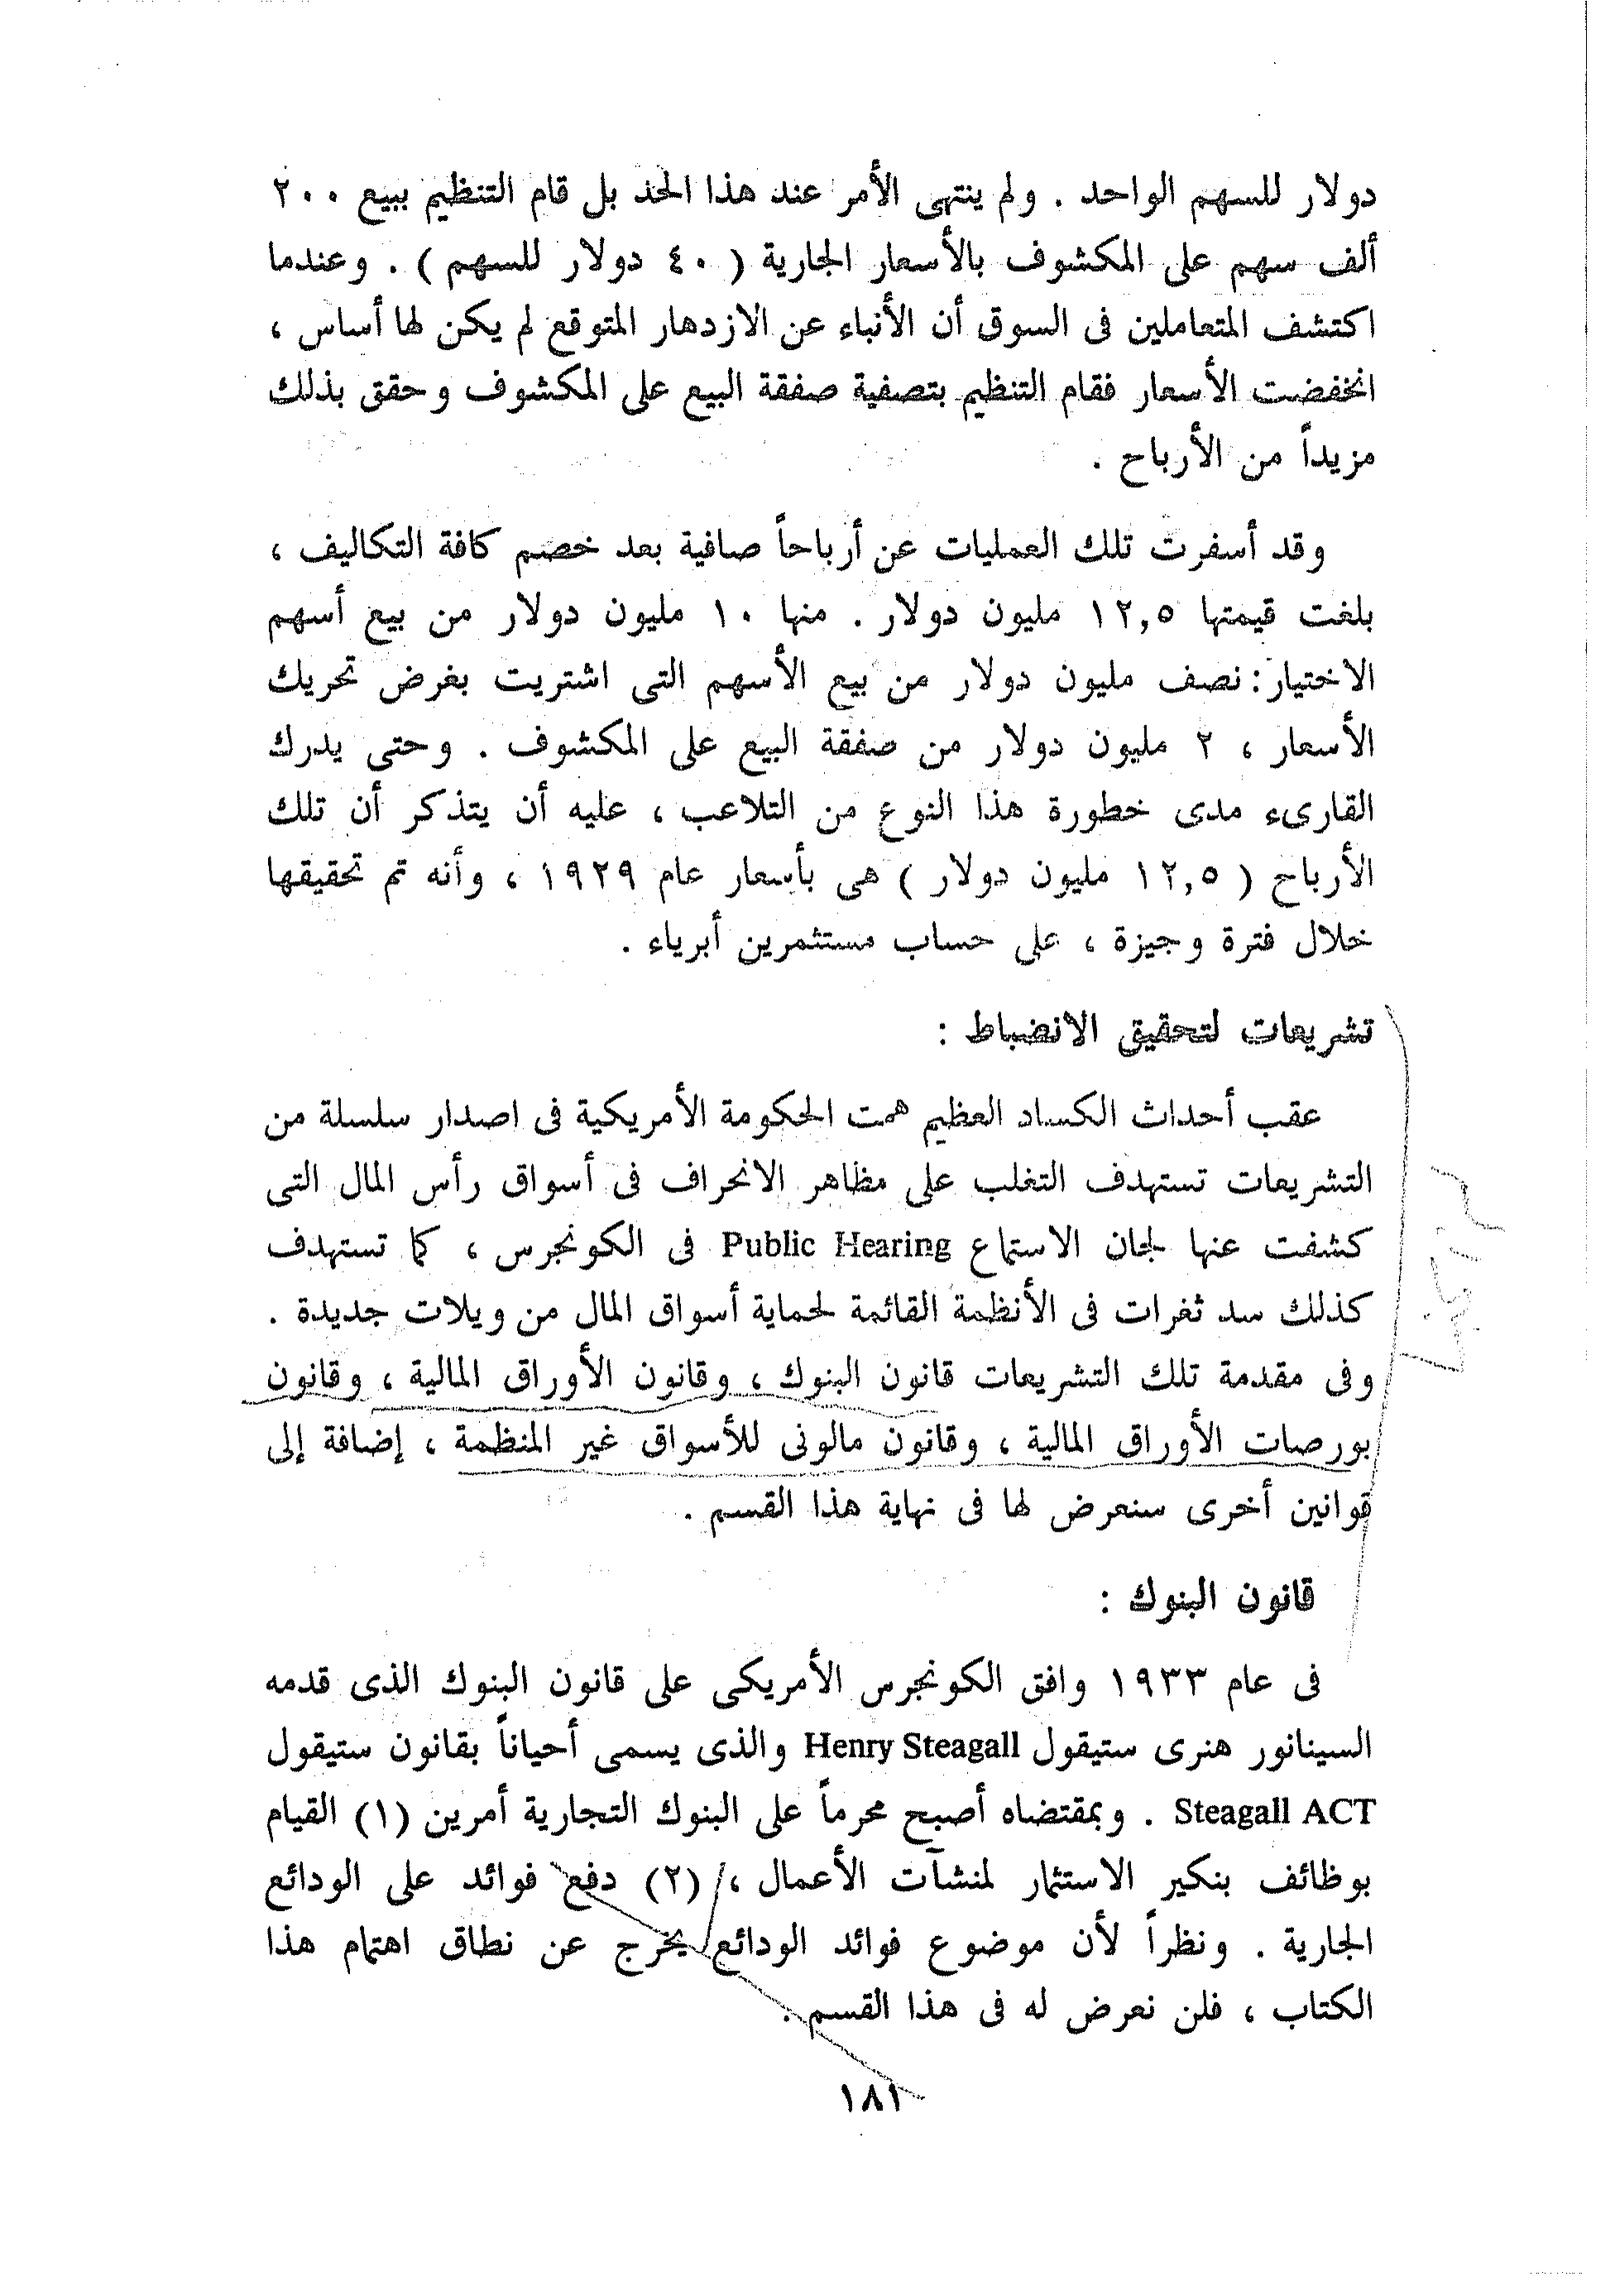 دولار للسهم الواحد . ولم ينتهى الأمر عند هذا الحد بل قام التنظيم ببيع ٢٠٠
ألف سهم على المكشوف بالأسعار الجارية ( ٤٠ دولار للسهم ) . وعندما
اكتشف المتعاملين فى السوق أن الأنباء عن الازدهار المتوقع لم يكن لها أساس ،
انخفضت الأسعار فقام التنظيم بتصفية صفقة البيع على المكشوف وحقق بذلك
مزيداً من الأرباح .
وقد أسفرت تلك العمليات عن أرباحاً صافية بعد خصم كافة التكاليف ،
بلغت قيمتها ١٢,٥ مليون دولار . منها ١٠ مليون دولار من بيع أسهم
الاختيار : نصف مليون دولار من بيع الأسهم التى اشتريت بغرض تحريك
الأسعار ، ٢ مليون دولار من صفقة البيع على المكشوف . وحتى يدرك
القارىء مدى خطورة هذا النوع من التلاعب ، عليه أن يتذكر أن تلك
الأرباح ( ١٢,٥ مليون دولار ) هى بأسعار عام ١٩٢٩ ، وأنه تم تحقيقها
خلال فترة وجيزة ، على حساب مستثمرين أبرياء .
تشريعات لتحقيق الانضباط :
عقب أحداث الكساد العظيم همت الحكومة الأمريكية فى اصدار سلسلة من
التشريعات تستهدف التغلب على مظاهر الانحراف فى أسواق رأس المال التى
كشفت عنها لجان الاستماع Public Hearing فى الكونجرس ، كما تستهدف
كذلك سد ثغرات فى الأنظمة القائمة لحماية أسواق المال من ويلات جديدة .
وفى مقدمة تلك التشريعات قانون البنوك ، وقانون الأوراق المالية ، وقانون
بورصات الأوراق المالية ، وقانون مالونى للأسواق غير المنظمة ، إضافة إلى
قوانين أخرى سنعرض لها فى نهاية هذا القسم .
قانون البنوك :
فى عام ١٩٣٣ وافق الكونجرس الأمريكى على قانون البنوك الذى قدمه
السيناتور هنرى ستيقول Henry Steagall والذى يسمى أحياناً بقانون ستيقول
Steagall ACT . وبمقتضاه أصبح محرماً على البنوك التجارية أمرين (١) القيام
بوظائف بنكير الاستثمار لمنشآت الأعمال ، (٢) دفع فوائد على الودائع
الجارية . ونظراً لأن موضوع فوائد الودائع يخرج عن نطاق اهتمام هذا
الكتاب ، فلن نعرض له فى هذا القسم .
١٨١